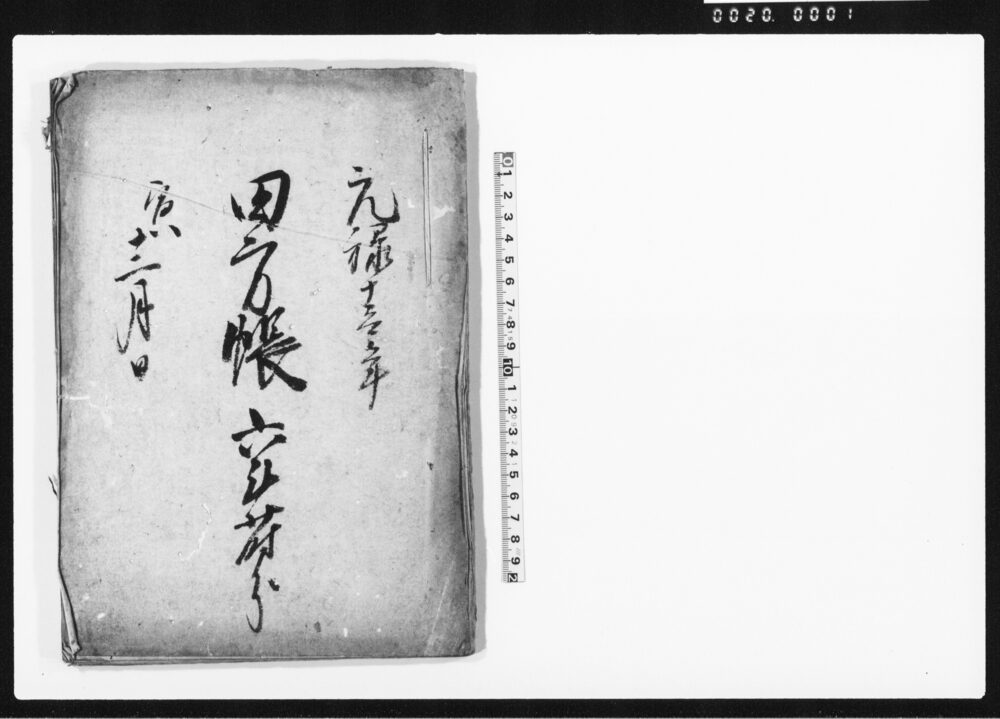 0020. 0001
元禄十一年
田方帳 六斗蒔分
寅十二月日
0 1 2 3 4 5 6 7 8 9 10 1 2 3 4 5 6 7 8 9 2